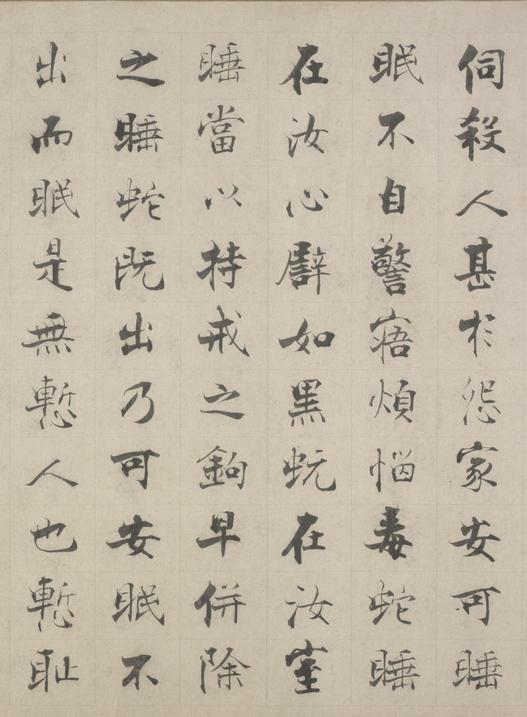 伺殺人甚於怨家安可睡
眠不自警寤煩惱毒蛇睡
在汝心譬如黑蚖在汝室
睡當以持戒之鉤早併除
之睡蛇既出乃可安眠不
出而眠是無慙人也慙恥